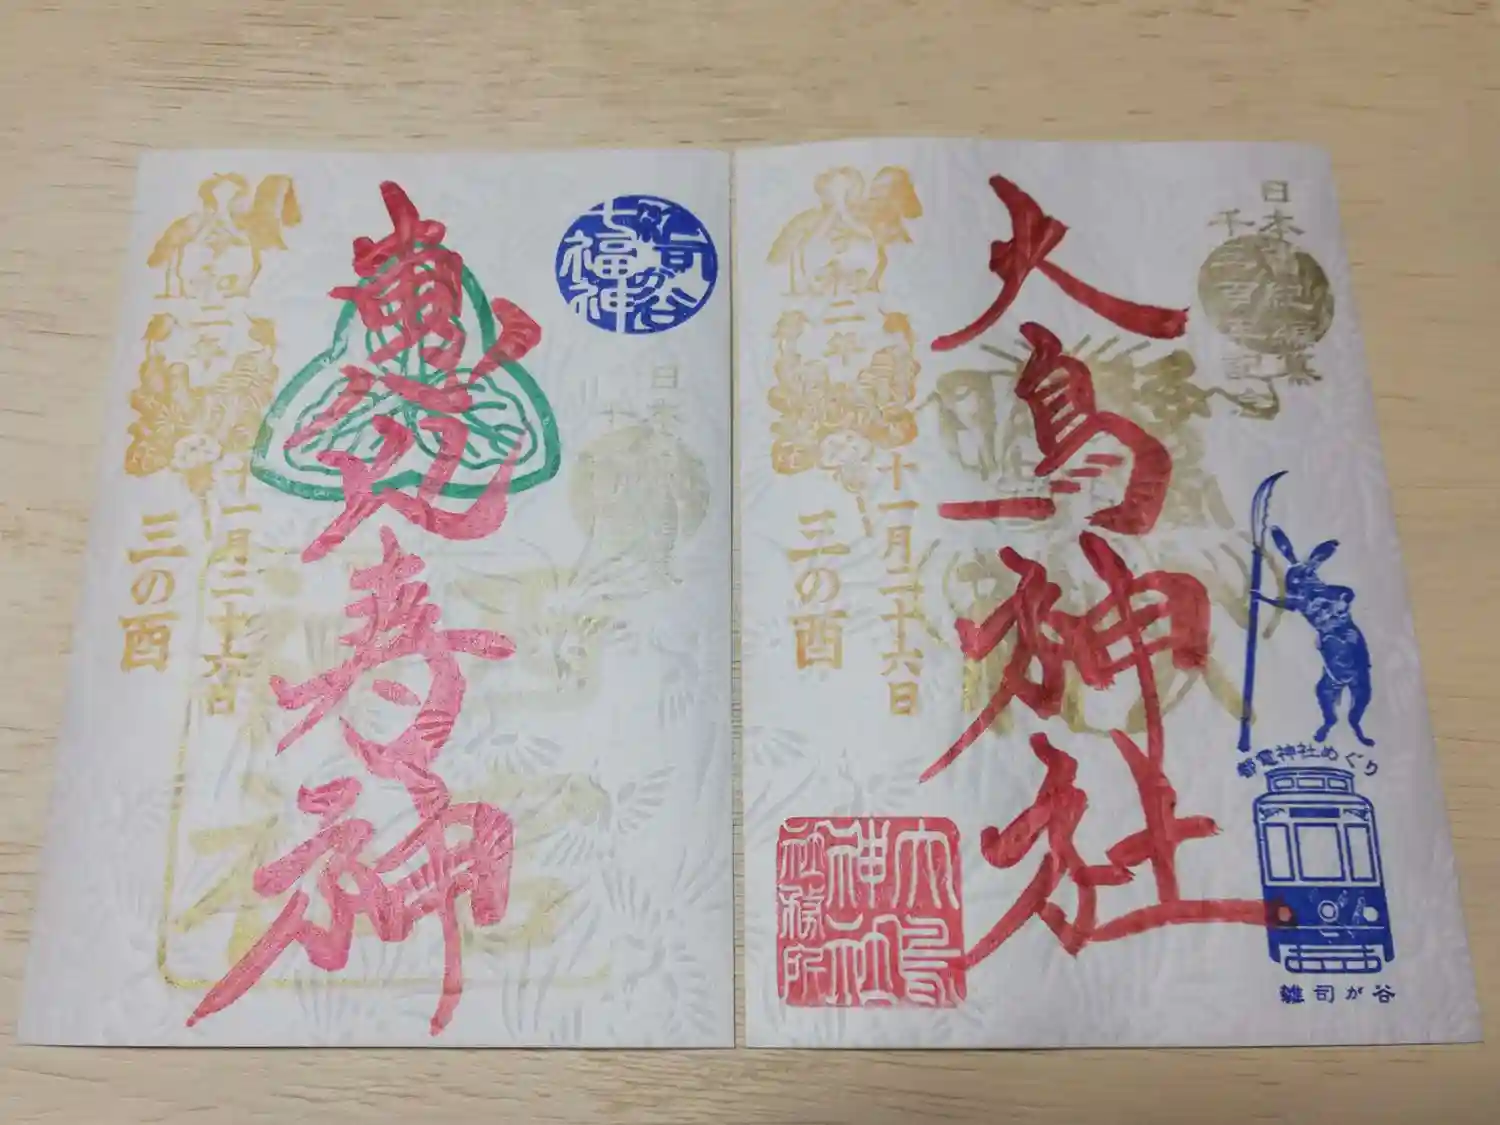 雑司が谷
七福神
恵比寿神
令和二年
十一月二十六日
三の酉
日本書紀編纂
千三百年記念
大鳥神社
令和二年
十一月二十六日
三の酉
大鳥
神社
社務所
都電神社めぐり
雑司が谷